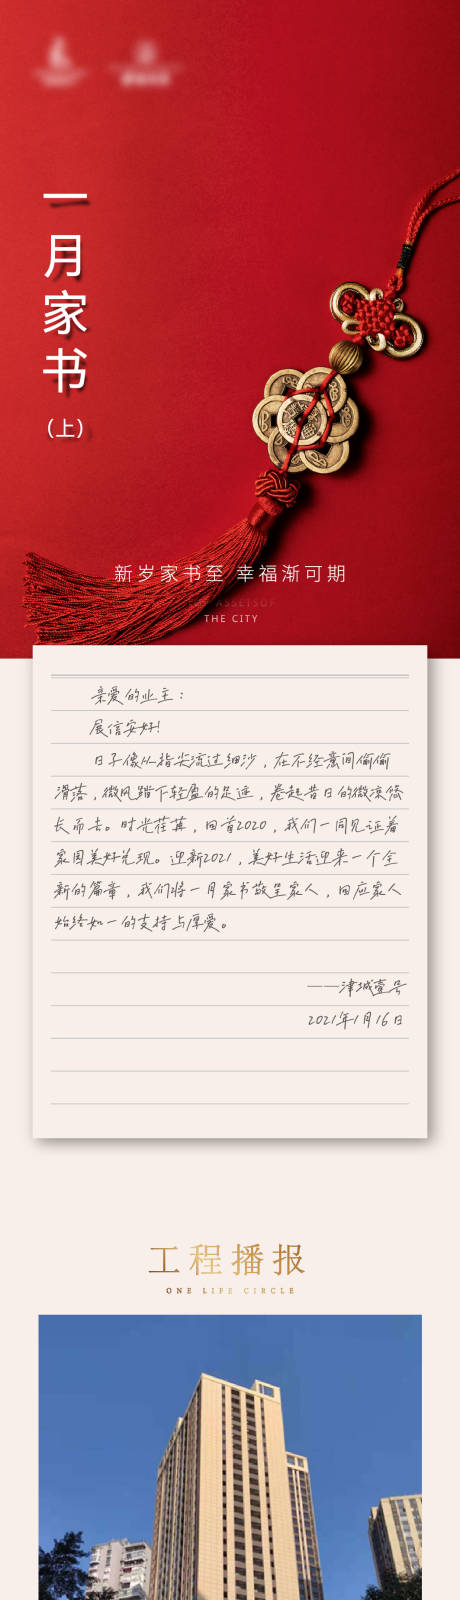 一月家书
（上）
新岁家书至 幸福渐可期
ASSETSOF
THE CITY
亲爱的业主：
展信安好！
日子像从指尖流过细沙，在不经意间偷偷
滑落，微风踏下轻盈的足迹，卷起昔日的微凉悠
长而去。时光荏苒，回首2020，我们一同见证着
家园美好兑现。迎新2021，美好生活迎来一个全
新的篇章，我们将一月家书敬呈家人，回应家人
始终如一的支持与厚爱。
——津城壹号
2021年1月16日
工程播报
ONE LIFE CIRCLE